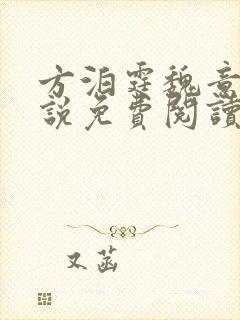 方洦霆魏意
說免費閱讀
又菡